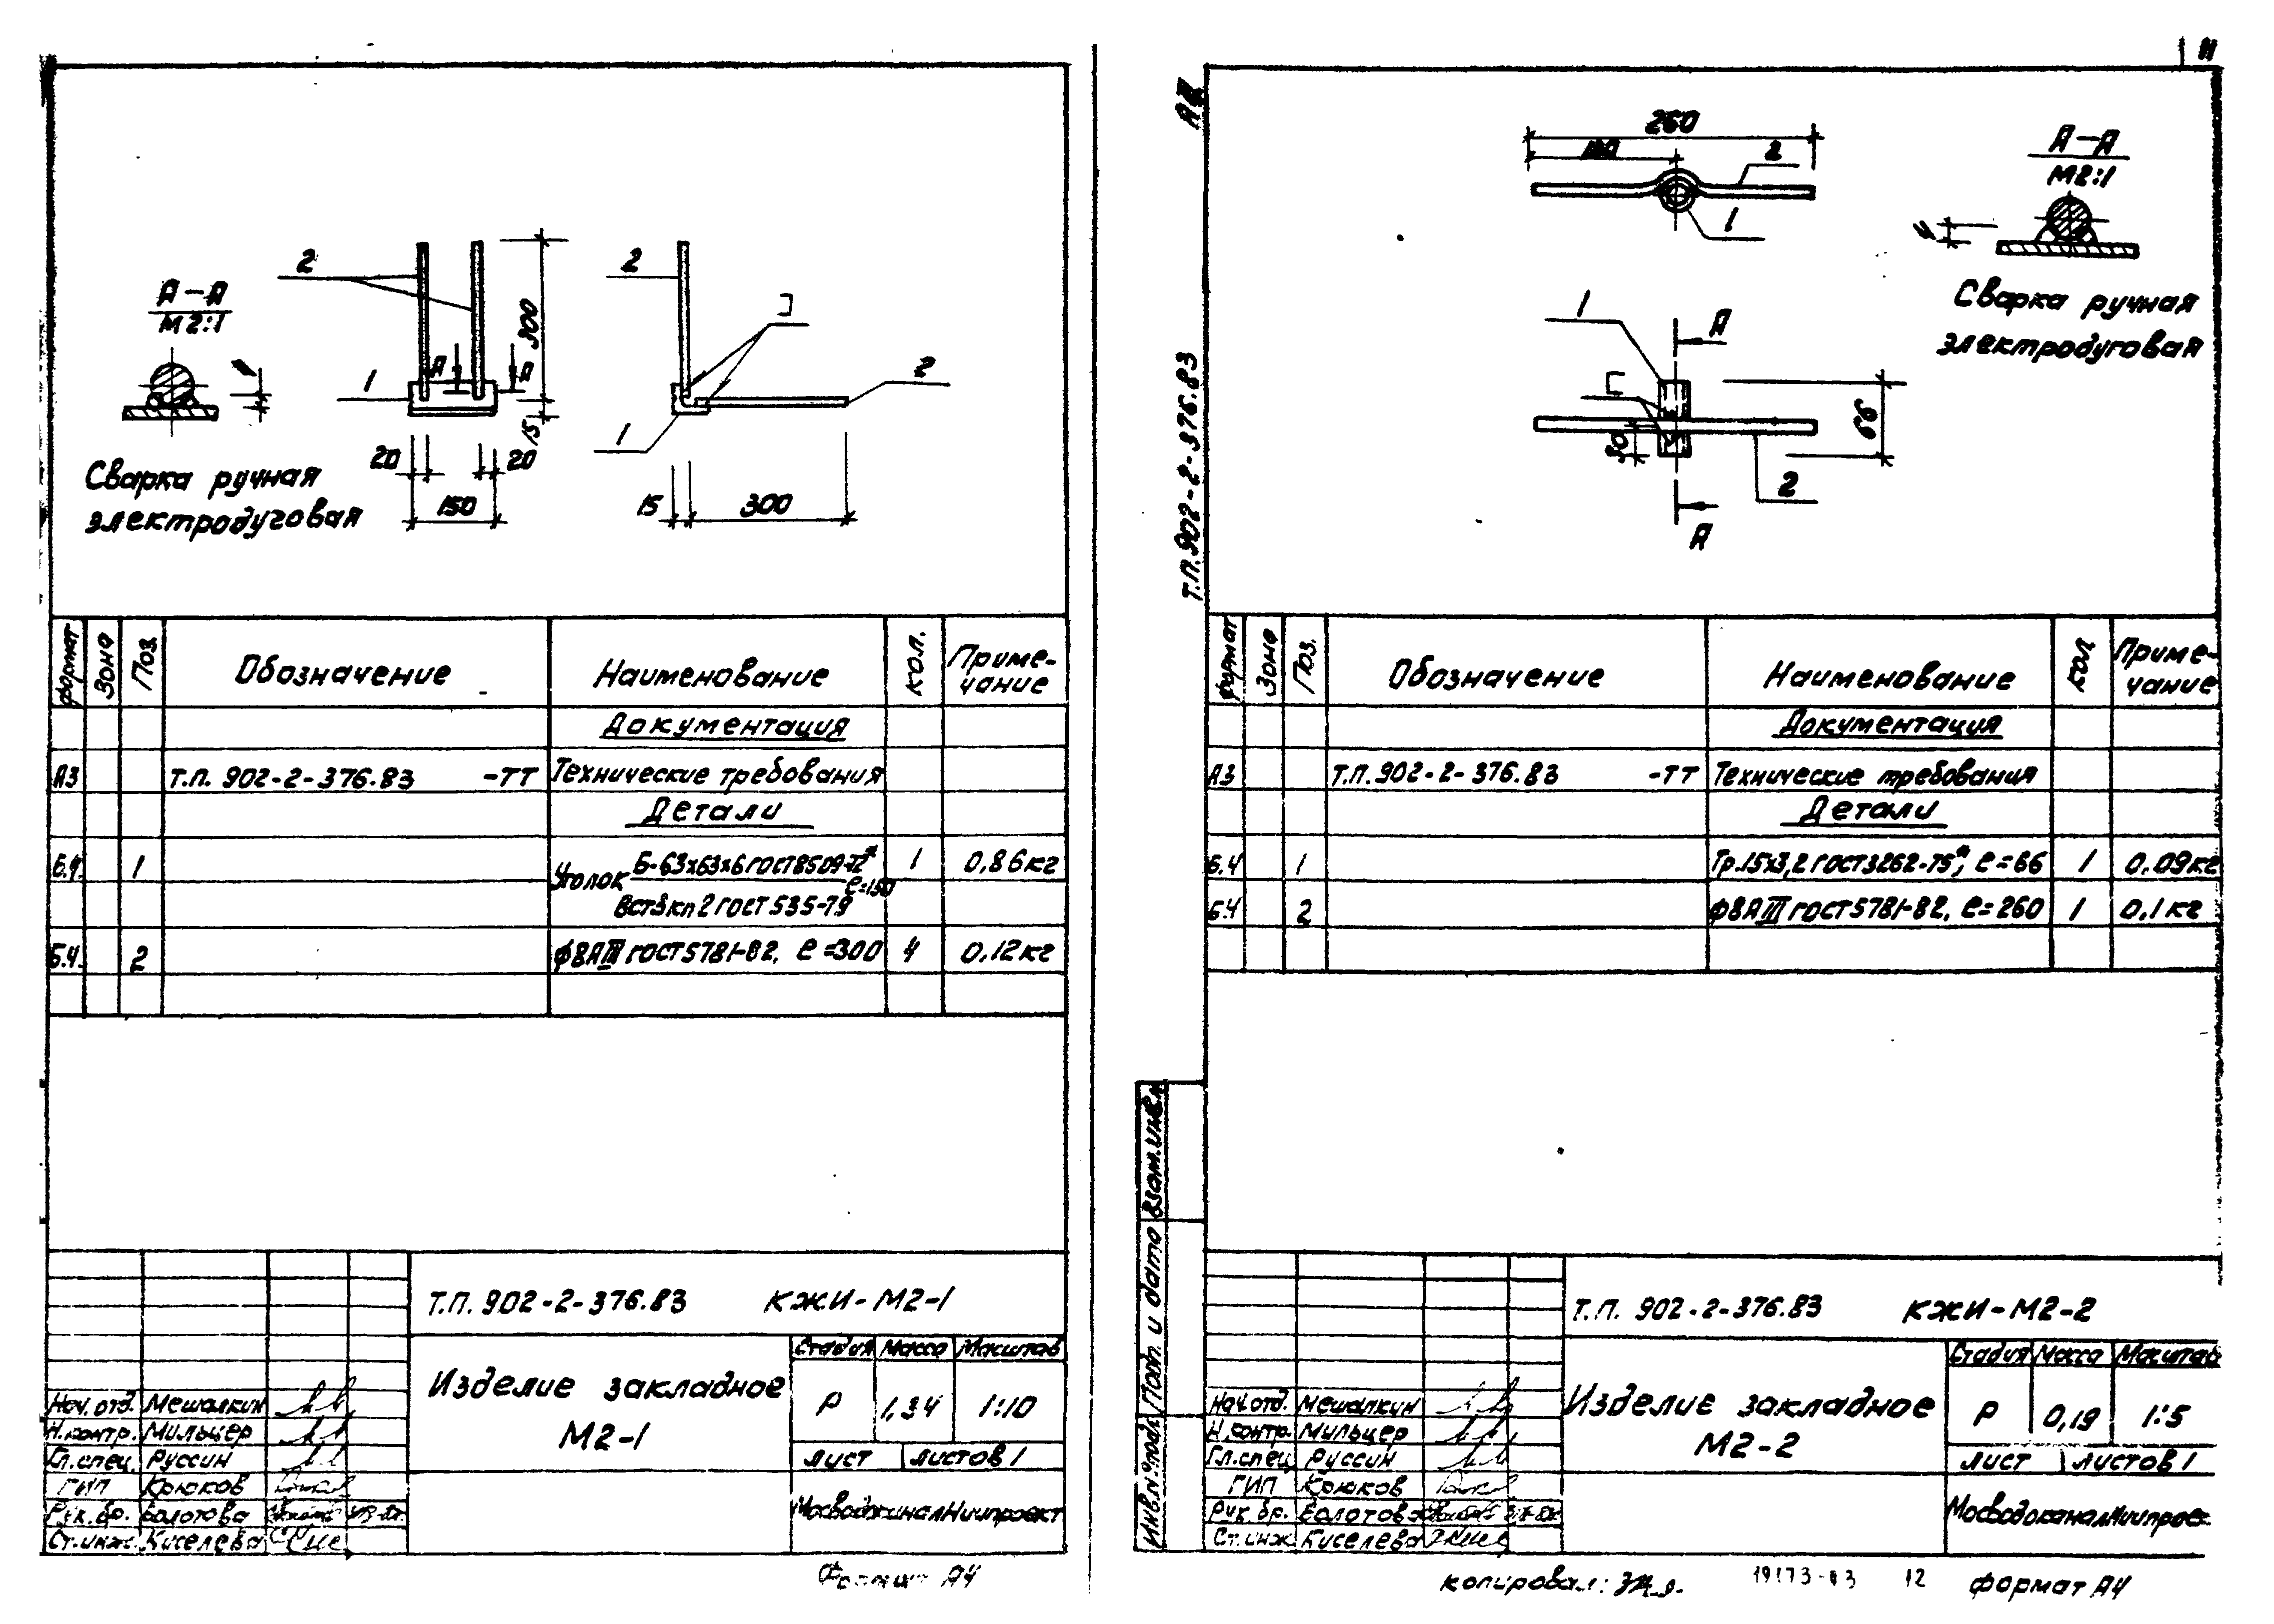 А-А
М2:1
Сварка ручная
электродуговая
2
1
А
А
300
15
20
20
150
2
2
1
15
300
Формат
Зона
Поз.
Обозначение
Наименование
Кол.
Приме-
чание
Документация
А3
Т.П. 902-2-376.83 -ТТ
Технические требования
Детали
Б.Ч.
1
Уголок Б-63х63х6 ГОСТ 8509-72*
ℓ=150
ВСт3кп2 ГОСТ 535-79
1
0,86кг
Б.Ч.
2
ф8АIII ГОСТ 5781-82, ℓ=300
4
0,12кг
Т.П. 902-2-376.83 КЖИ-М2-1
Изделие закладное
М2-1
Стадия
Масса
Масштаб
Р
1,34
1:10
Лист
Листов 1
МосводоканалНиипроект
Нач.отд. Мешалкин
Н.контр. Мильцер
Гл.спец. Руссин
ГИП Крюков
Рук.бр. Болотова
Ст.инж. Киселева
Формат А4
11
Т.П. 902-2-376.83
260
2
1
А-А
М2:1
4
Сварка ручная
электродуговая
1
А
66
30
2
А
Формат
Зона
Поз.
Обозначение
Наименование
Кол.
Приме-
чание
Документация
А3
Т.П. 902-2-376.83 -ТТ
Технические требования
Детали
Б.Ч
1
Тр.15х3,2 ГОСТ 3262-75*, ℓ=66
1
0.09кг
Б.Ч
2
ф8АIII ГОСТ 5781-82, ℓ=260
1
0,1кг
Взам.инв.№
Подп. и дата
Инв.№ подл.
Т.П. 902-2-376.83 КЖИ-М2-2
Изделие закладное
М2-2
Стадия
Масса
Масштаб
Р
0,19
1:5
Лист
Листов 1
МосводоканалНиипроек
Нач.отд. Мешалкин
Н.контр. Мильцер
Гл.спец Руссин
ГИП Крюков
Рук.бр. Болотова
Ст.инж. Киселева
копировал:
19173-03 12
формат А4